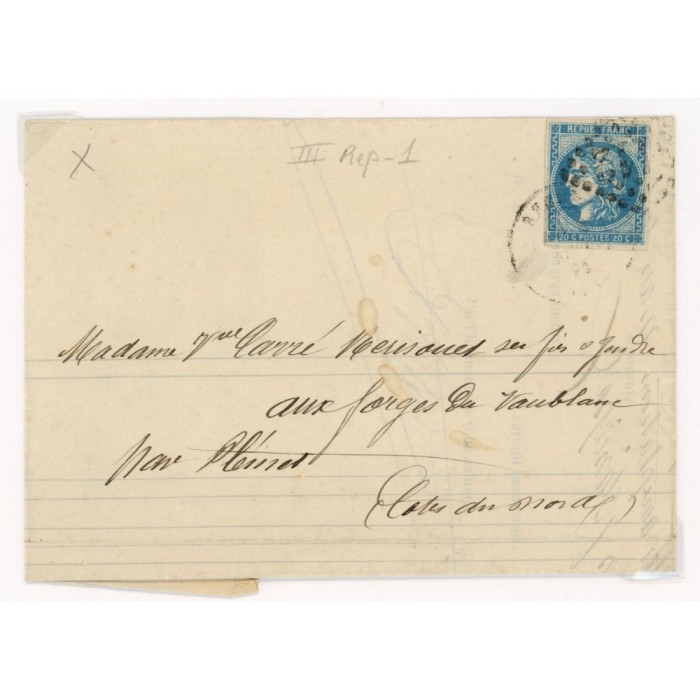 X
III Rep-1
REPUB FRANC
20 C POSTES 20 C
Madame Vve Carré Kerisouet ses fils & gendre
aux forges du Vaublanc
par Plémet
(Cotes du Nord)